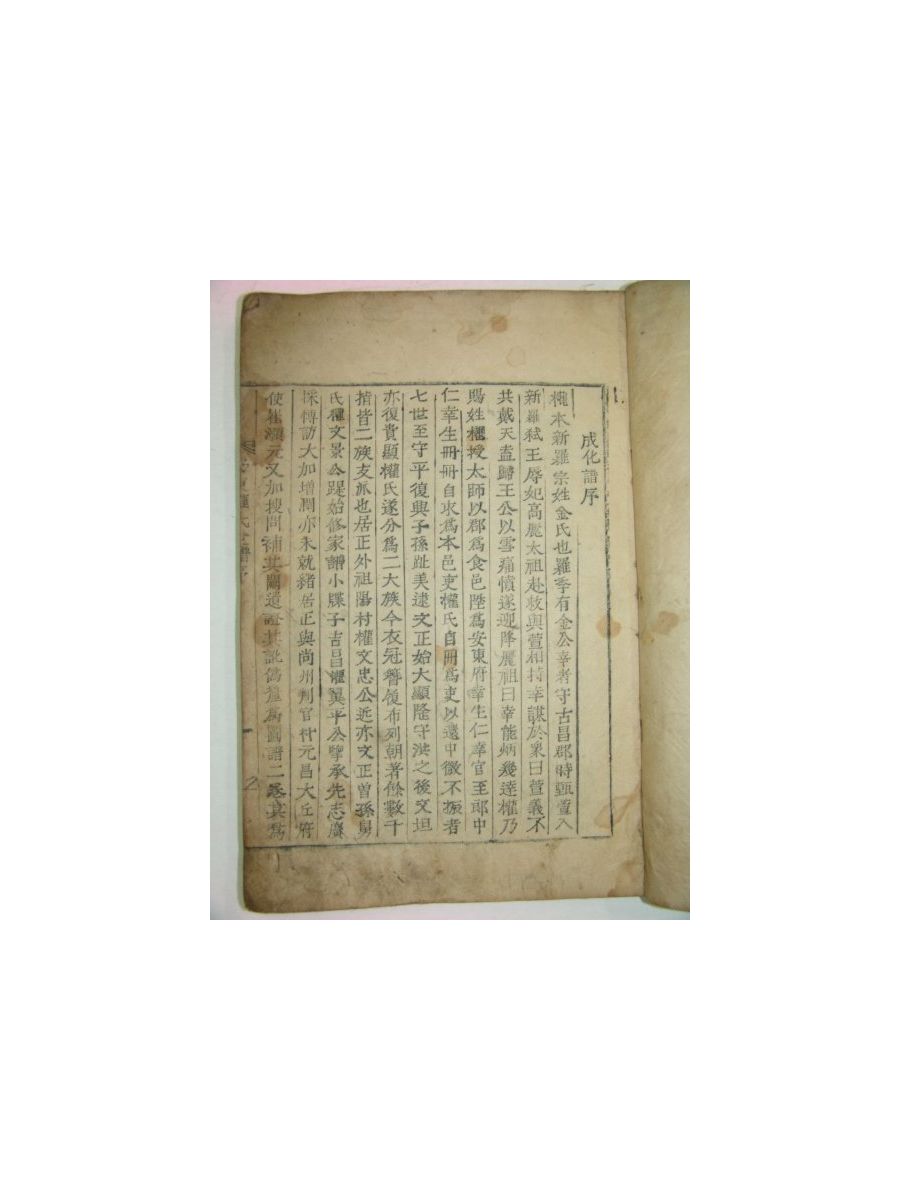 成化譜序
權本新羅宗姓金氏也羅季有金公幸者守古昌郡時甄萱入
新羅弑王辱妃高麗太祖赴救與萱相持幸謀於衆曰萱義不
共戴天盍歸王公以雪痛憤遂迎降麗祖曰幸能炳幾達權乃
賜姓權授太師以郡爲食邑陞爲安東府幸生仁幸官至郎中
仁幸生冊冊自求爲本邑吏權氏自冊爲吏以還中微不振者
七世至守平復興子孫趾美逮文正始大顯隆守洪之後文坦
亦復貴顯權氏遂分爲二大族今衣冠簪履布列朝著餘數千
指皆二族支派也居正外祖陽村權文忠公近亦文正曾孫舅
氏權文景公踶始修家譜小牒子吉昌權翼平公擥承先志廣
採傳訪大加增潤亦未就緒居正與尚州判官朴元昌大丘府
使崔灝元又加搜問補其闕遺證其訛僞釐爲圖譜二卷其爲